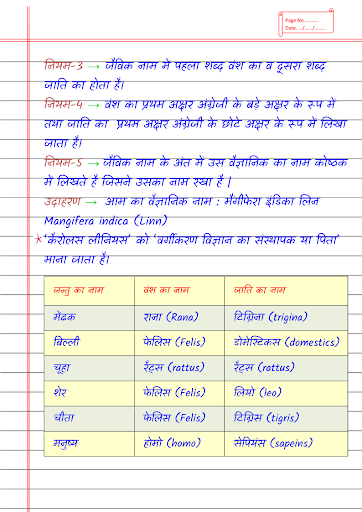 Page No..........
Date...../...../.......
नियम-3 → जैविक नाम में पहला शब्द वंश का व दूसरा शब्द
जाति का होता है।
नियम-4 → वंश का प्रथम अक्षर अंग्रेजी के बड़े अक्षर के रूप में
तथा जाति का प्रथम अक्षर अंग्रेजी के छोटे अक्षर के रूप में लिखा
जाता है।
नियम-5 → जैविक नाम के अंत में उस वैज्ञानिक का नाम कोष्ठक
में लिखते है जिसने उसका नाम रखा है |
उदाहरण → आम का वैज्ञानिक नाम : मैंगीफेरा इंडिका लिन
Mangifera indica (Linn)
*'कैरोलस लीनियस' को 'वर्गीकरण विज्ञान का संस्थापक या पिता'
माना जाता है।
जन्तु का नाम वंश का नाम जाति का नाम
मेंढक राना (Rana) टिग्रिना (trigina)
बिल्ली फेलिस (Felis) डोमेस्टिकस (domestics)
चूहा रैट्स (rattus) रैट्स (rattus)
शेर फेलिस (Felis) लियो (leo)
चीता फेलिस (Felis) टिग्रिस (tigris)
मनुष्य होमो (homo) सेपियंस (sapeins)